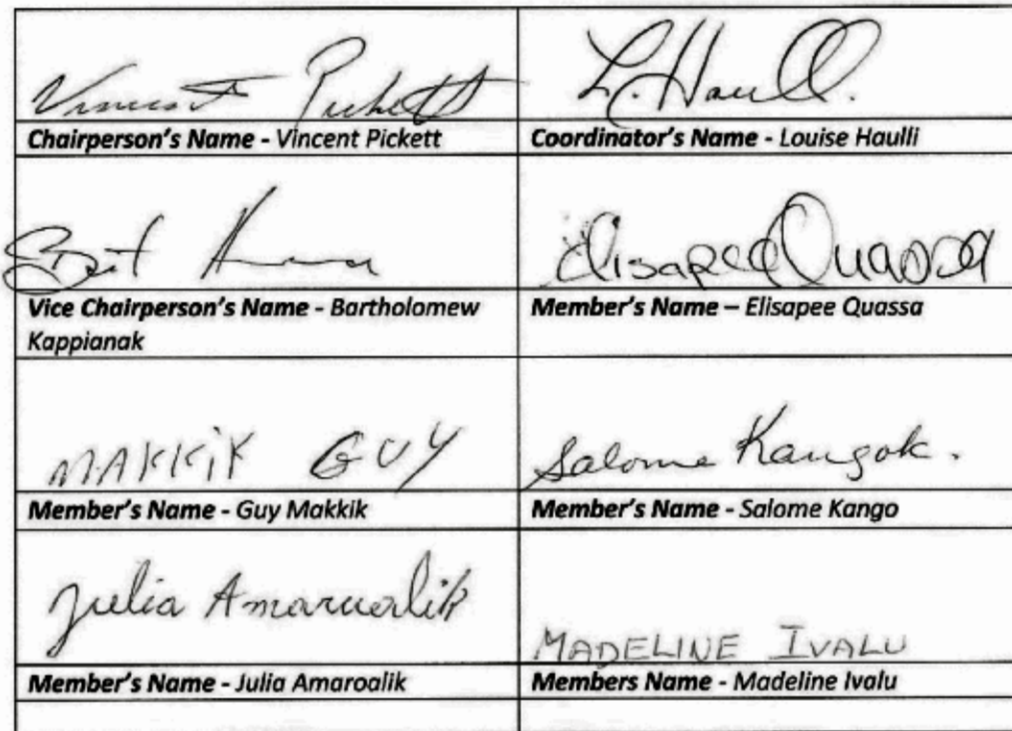 Vincent Pickett
L. Haulli.
Chairperson's Name - Vincent Pickett
Coordinator's Name - Louise Haulli
Elisapee Quassa
Vice Chairperson's Name - Bartholomew
Kappianak
Member's Name – Elisapee Quassa
MAKKIK GUY
Salome Kangok.
Member's Name - Guy Makkik
Member's Name - Salome Kango
Julia Amarualik
MADELINE IVALU
Member's Name - Julia Amaroalik
Members Name - Madeline Ivalu